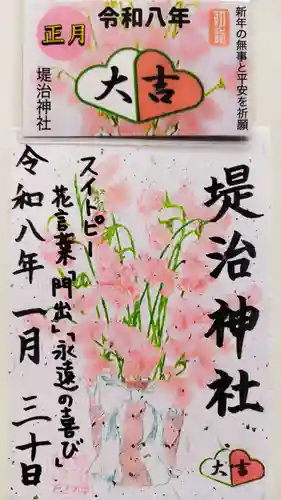 令和八年
正月
初詣
新年の無事と平安を祈願
大吉
堤治神社
堤治神社
スイトピー
花言葉「門出」「永遠の喜び」
令和八年 一月 三十日
大吉